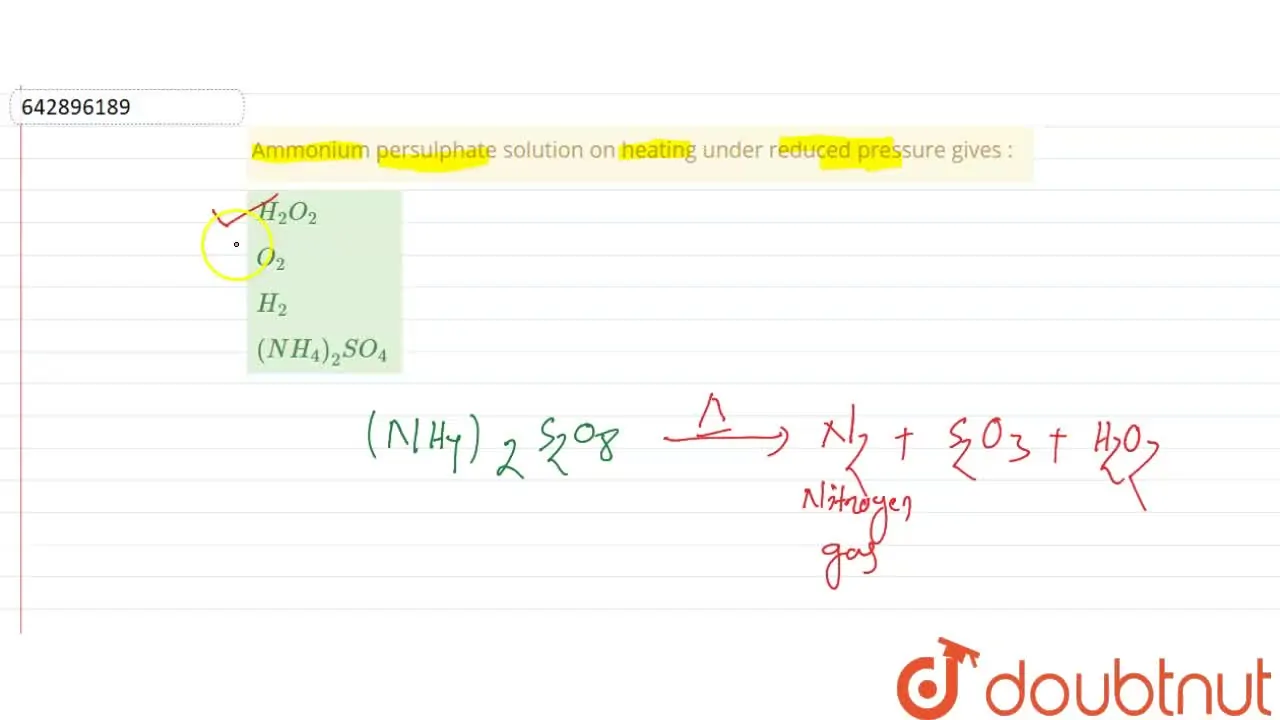 642896189
Ammonium persulphate solution on heating under reduced pressure gives :
H₂O₂
O₂
H₂
(NH₄)₂SO₄
(NH₄)₂S₂O₈ —Δ→ N₂ + S₂O₃ + H₂O₂
Nitrogen
gas
doubtnut